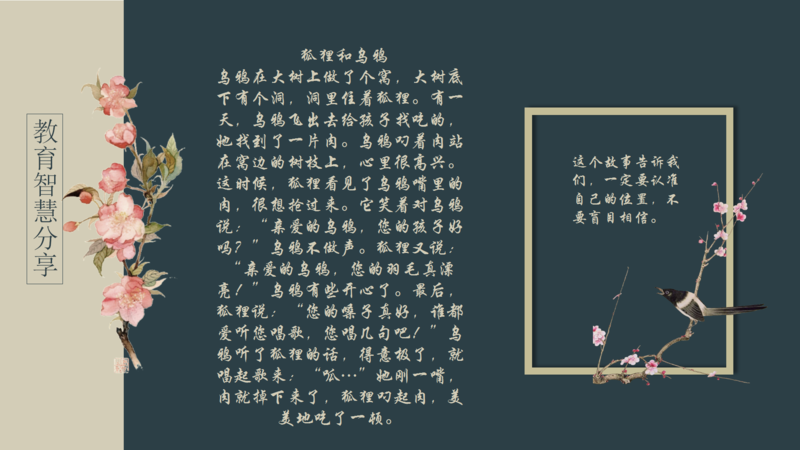 教育智慧分享
狐狸和乌鸦
乌鸦在大树上做了个窝，大树底
下有个洞，洞里住着狐狸。有一
天，乌鸦飞出去给孩子找吃的，
她找到了一片肉。乌鸦叼着肉站
在窝边的树枝上，心里很高兴。
这时候，狐狸看见了乌鸦嘴里的
肉，很想抢过来。它笑着对乌鸦
说：“亲爱的乌鸦，您的孩子好
吗？”乌鸦不做声。狐狸又说：
“亲爱的乌鸦，您的羽毛真漂
亮！”乌鸦有些开心了。最后，
狐狸说：“您的嗓子真好，谁都
爱听您唱歌，您唱几句吧！”乌
鸦听了狐狸的话，得意极了，就
唱起歌来：“呱…”她刚一嘴，
肉就掉下来了，狐狸叼起肉，美
美地吃了一顿。
这个故事告诉我
们，一定要认准
自己的位里，不
要盲目相信。